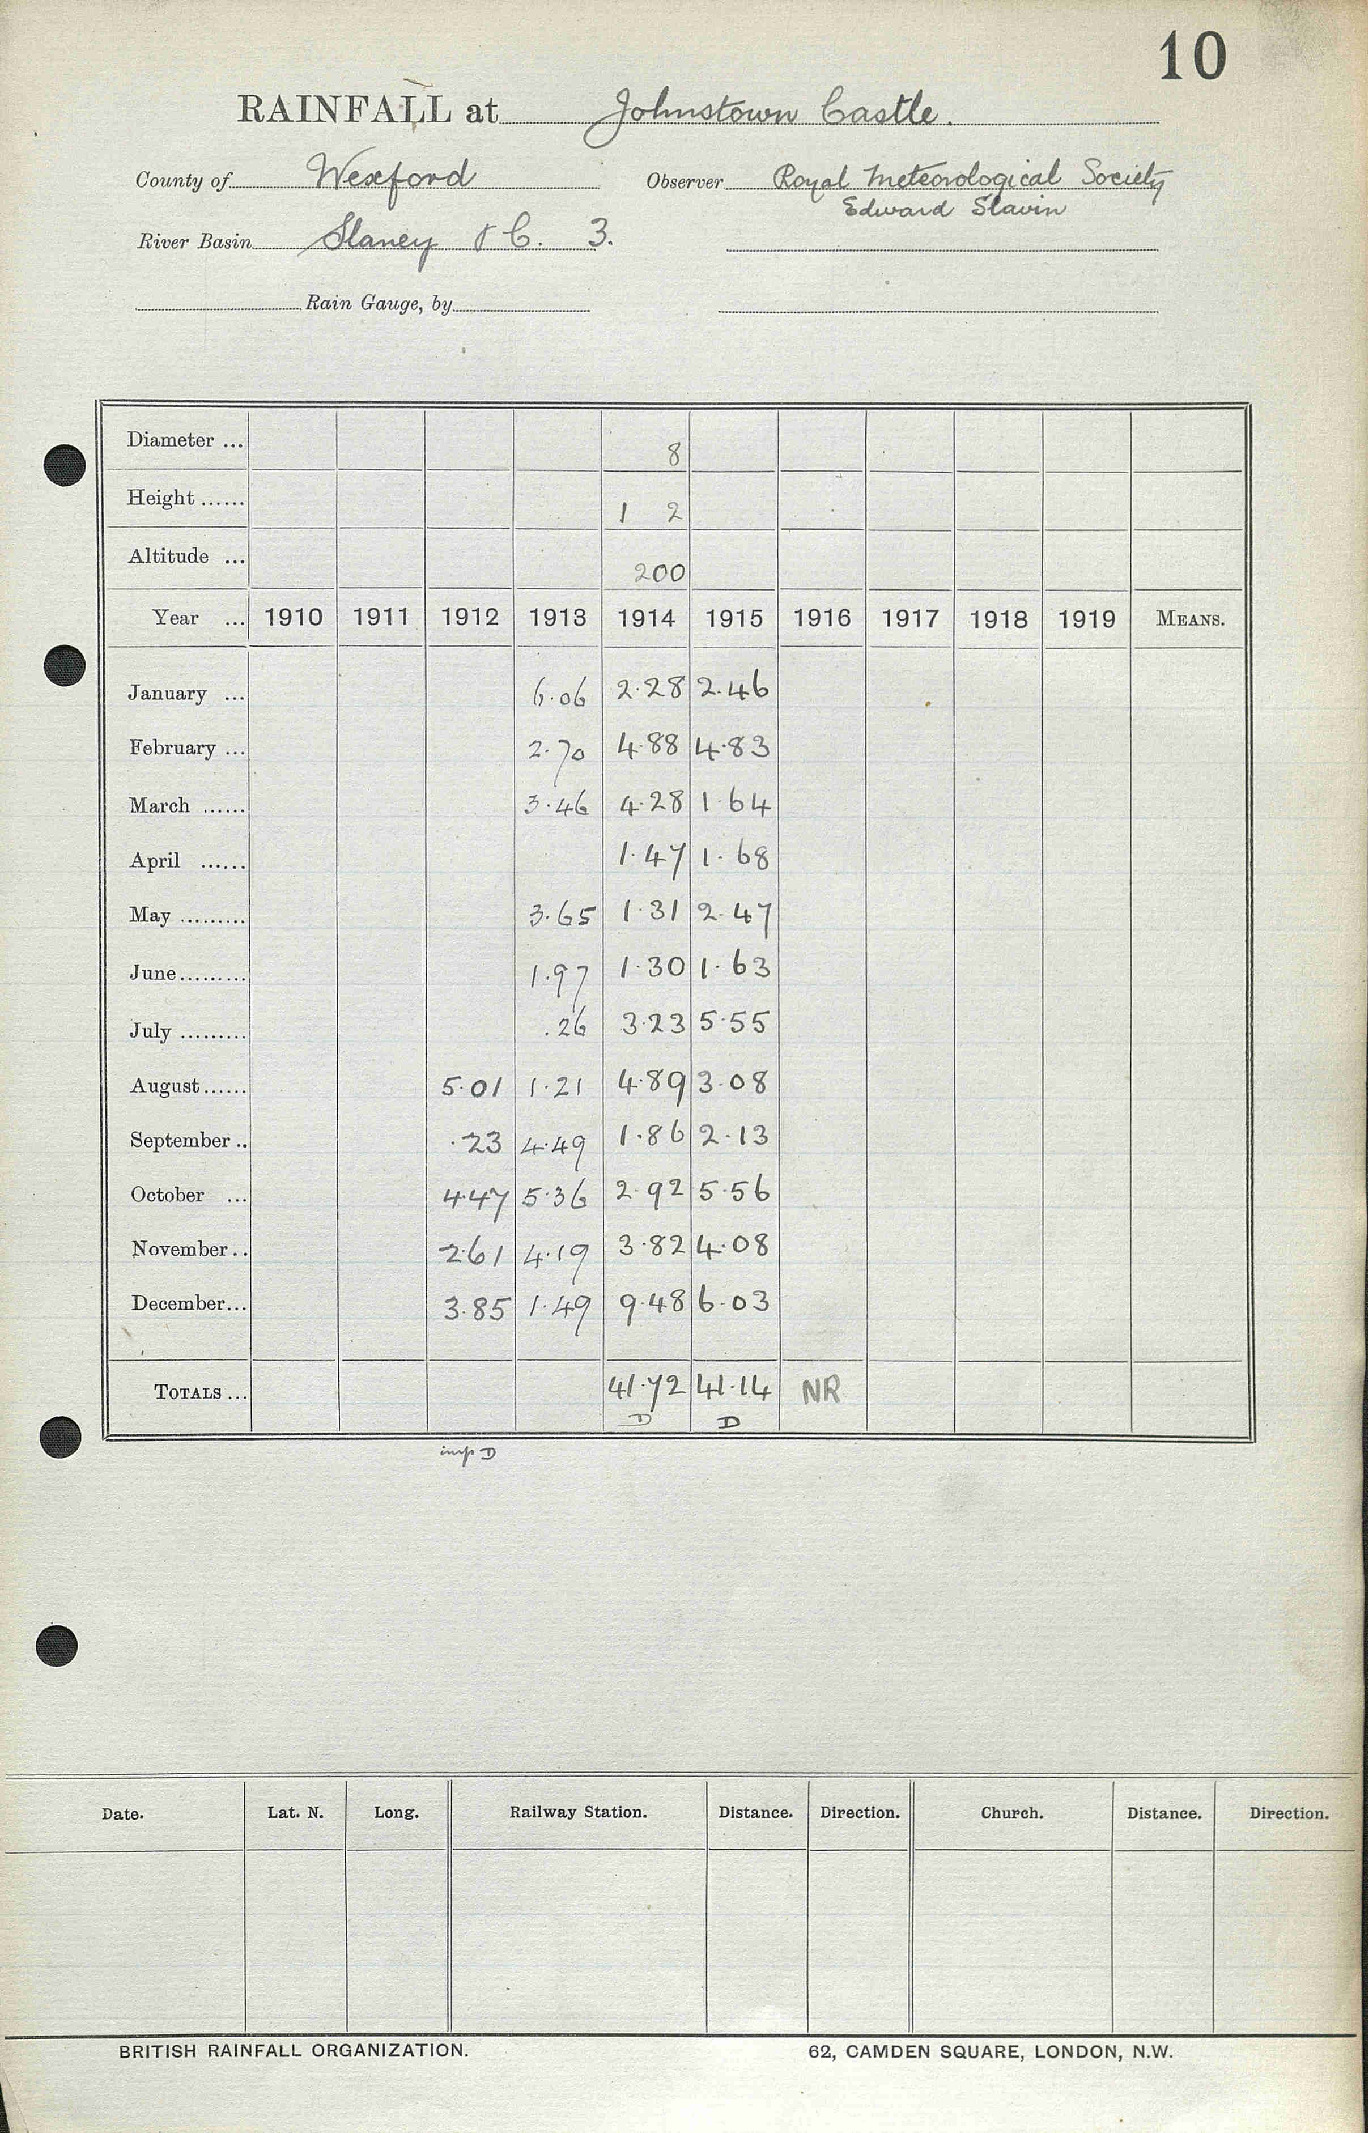 10
RAINFALL at Johnstown Castle.
County of Wexford Observer Royal Meteorological Society
Edward Slavin
River Basin Slaney & C. 3.
Rain Gauge, by
Diameter ... 8
Height ...... 1 2
Altitude ... 200
Year ... 1910 1911 1912 1913 1914 1915 1916 1917 1918 1919 MEANS.
January ... 6.06 2.28 2.46
February ... 2.70 4.88 4.83
March ...... 3.46 4.28 1.64
April ...... 1.47 1.68
May ......... 3.65 1.31 2.47
June......... 1.97 1.30 1.63
July ......... .26 3.23 5.55
August...... 5.01 1.21 4.89 3.08
September .. .23 4.49 1.86 2.13
October ... 4.47 5.36 2.92 5.56
November .. 2.61 4.19 3.82 4.08
December... 3.85 1.49 9.48 6.03
TOTALS ... 41.72 41.14 NR
D D
imp D
Date. Lat. N. Long. Railway Station. Distance. Direction. Church. Distance. Direction.
BRITISH RAINFALL ORGANIZATION. 62, CAMDEN SQUARE, LONDON, N.W.